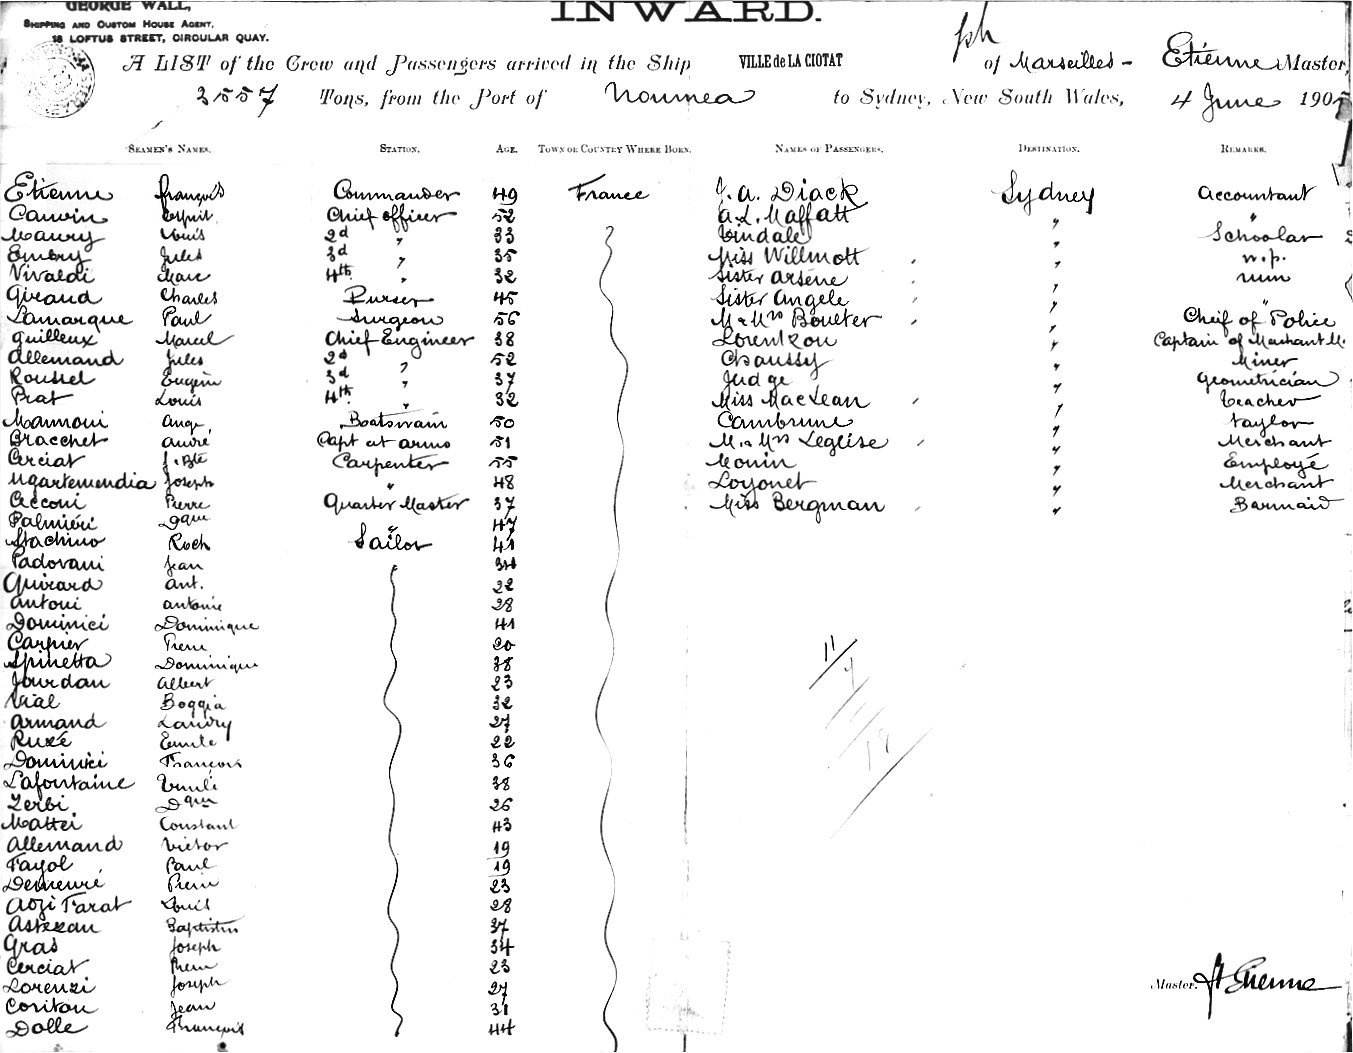 GEORGE WALL,
SHIPPING AND CUSTOM HOUSE AGENT,
18 LOFTUS STREET, CIRCULAR QUAY.
INWARD.
A LIST of the Crew and Passengers arrived in the Ship VILLE de LA CIOTAT of Marseilles - Etienne Master,
3557 Tons, from the Port of Noumea to Sydney, New South Wales, 4 June 190
SEAMEN'S NAMES. STATION. AGE. TOWN OR COUNTRY WHERE BORN. NAMES OF PASSENGERS. DESTINATION. REMARKS.
Etienne François Commander 49 France J. A. Diack Sydney Accountant
Cauvin Esprit Chief officer 52 A. L. Maffatt " "
Maury Louis 2d " 33 Tindale " Schoolar
Embry Jules 3d " 35 Miss Willmott "
Vivaldi Marc 4th " 32 Sister Arsène " nun
Giraud Charles Purser 45 Sister Angele " "
Lamarque Paul Surgeon 56 M & Mrs Boulter " Cheif of Police
Guilleux Marcel Chief Engineer 38 Lorentzon " Captain of Marchant M.
Allemand Jules 2d " 52 Chaussy " Miner
Roussel Eugène 3d " 37 Judge " Geometrician
Prat Louis 4th " 32 Miss MacLean " Teacher
Mannoni Ange Boatswain 50 Cambrune " taylor
Bracchet André Capt at arms 51 M. & Mrs Leglise " Merchant
Cerciat J. Bte Carpenter 55 Monin " Employé
Ugartemendia Joseph " 48 Loyonet " Merchant
Cicconi Pierre Quarter Master 37 Miss Bergman " Barmaid
Palmiéri Dque " 47
Stachino Roch Sailor 41
Padovani Jean 34
Guirard Ant. 22
Antoni Antoine 28
Dominici Dominique 41
Carpier Pierre 20
Spinetta Dominique 38
Jourdan Albert 23
Vial Boggia 32
Armand Landry 27
Ruzé Emile 22
Dominici François 36
Lafontaine Emile 38
Zerbi Dque 26
Mattei Constant 43
Allemand Victor 19
Fayol Paul 19
Demeuré Pierre 23
Aozi Tarat Louis 28
Astezan Baptistin 37
Gras Joseph 34
Cerciat Pierre 23
Lorenzi Joseph 27
Coritou Jean 31
Dolle François 44
11
7
18
Master. F Etienne